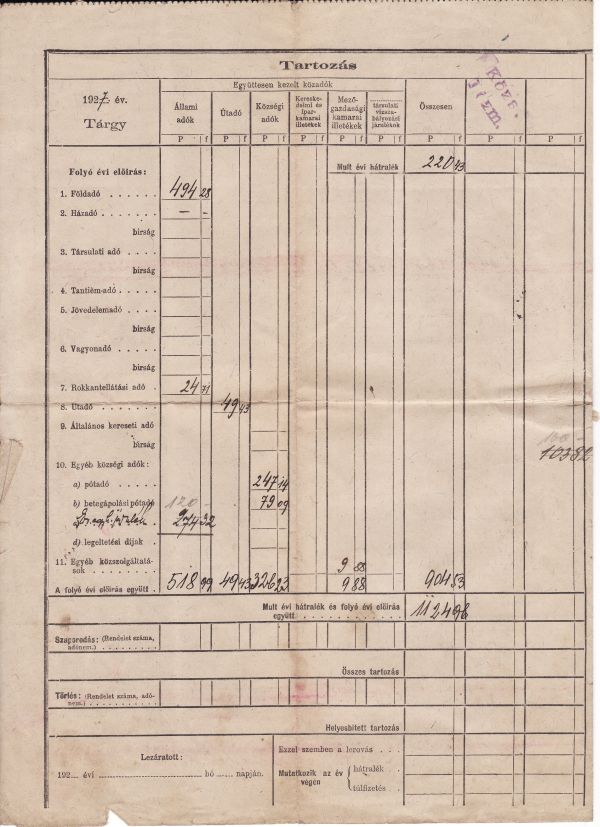 Tartozás
Együttesen kezelt közadók
1927 év.
Tárgy
Állami adók
Útadó
Községi adók
Kereskedelmi és iparkamarai illetékek
Mezőgazdasági kamarai illetékek
társulati vizszabályozási járulékok
Összesen
P f P f P f P f P f P f P f
Mult évi hátralék 220 43
Folyó évi előirás:
1. Földadó . . . . . . 494 28
2. Házadó . . . . . . — -
birság
3. Társulati adó . . . .
birság
4. Tantièm-adó . . . . .
5. Jövedelemadó . . . .
birság
6. Vagyonadó . . . . .
birság
7. Rokkantellátási adó . 24 71
8. Útadó . . . . . . . 49 43
9. Általános kereseti adó
birság
100 -
1038 2
10. Egyéb községi adók:
a) pótadó . . . . . 247 14
b) betegápolási pótadó 120 79 09
274 32
d) legeltetési díjak .
11. Egyéb közszolgáltatások . . . . . . . . 9 88
A folyó évi előirás együtt . 518 99 49 43 326 23 9 88 904 53
Mult évi hátralék és folyó évi előirás együtt . . . . . . . . . . 1124 96
Szaporodás: (Rendelet száma, adónem.) . . . . . . . .
Összes tartozás
Törlés: (Rendelet száma, adónem.) . . . . . . . .
Helyesbített tartozás
Lezáratott:
192.... évi ........ hó ..... napján.
Ezzel szemben a lerovás . . .
Mutatkozik az év végén
hátralék .
túlfizetés .